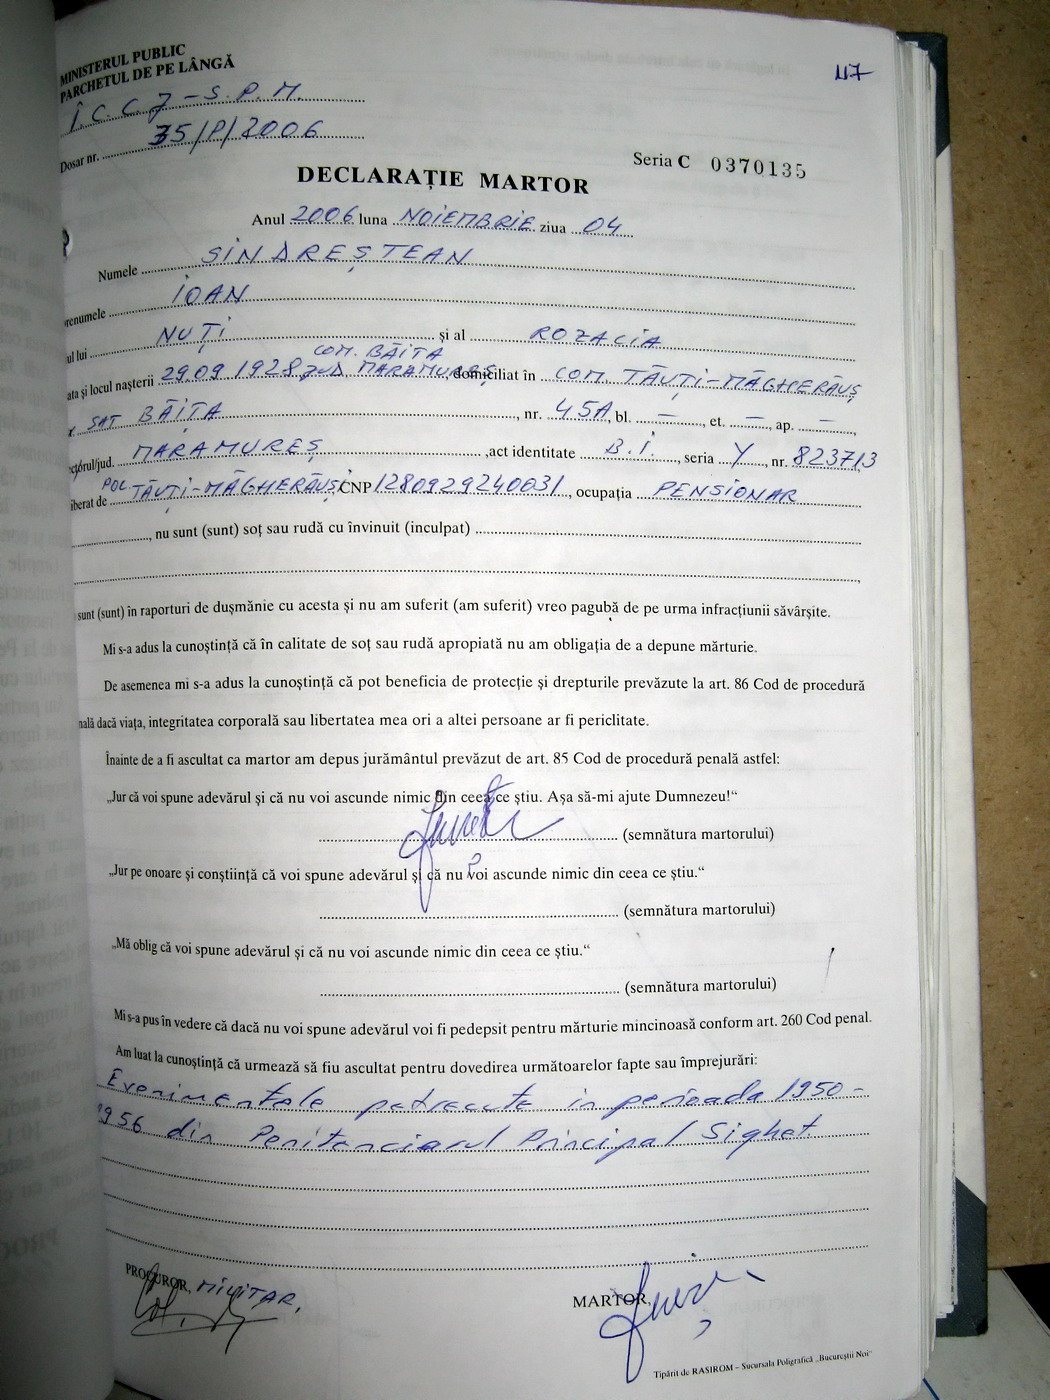 117
MINISTERUL PUBLIC
PARCHETUL DE PE LÂNGĂ
Î.C.C.J - S.P.M.
Dosar nr. 35/P/2006
Seria C 0370135
DECLARAȚIE MARTOR
Anul 2006 luna NOIEMBRIE ziua 04
Numele SINDREȘTEAN
renumele IOAN
ul lui NUȚI și al ROZACIA
COM. BĂIȚA
ata și locul nașterii 29.09.1928, JUD. MARAMUREȘ, domiciliat în COM. TĂUȚI-MĂGHERĂUȘ
SAT BĂIȚA, nr. 45A, bl. —, et. —, ap. —,
ectorul/jud. MARAMUREȘ, act identitate B.I., seria Y, nr. 823713
iberat de POL. TĂUȚI-MĂGHERĂUȘ, CNP 1280929240031, ocupația PENSIONAR
, nu sunt (sunt) soț sau rudă cu învinuit (inculpat)
sunt (sunt) în raporturi de dușmănie cu acesta și nu am suferit (am suferit) vreo pagubă de pe urma infracțiunii săvârșite.
Mi s-a adus la cunoștință că în calitate de soț sau rudă apropiată nu am obligația de a depune mărturie.
De asemenea mi s-a adus la cunoștință că pot beneficia de protecție și drepturile prevăzute la art. 86 Cod de procedură
nală dacă viața, integritatea corporală sau libertatea mea ori a altei persoane ar fi periclitate.
Înainte de a fi ascultat ca martor am depus jurământul prevăzut de art. 85 Cod de procedură penală astfel:
„Jur că voi spune adevărul și că nu voi ascunde nimic din ceea ce știu. Așa să-mi ajute Dumnezeu!“
(semnătura martorului)
„Jur pe onoare și conștiință că voi spune adevărul și că nu voi ascunde nimic din ceea ce știu.“
(semnătura martorului)
„Mă oblig că voi spune adevărul și că nu voi ascunde nimic din ceea ce știu.“
(semnătura martorului)
Mi s-a pus în vedere că dacă nu voi spune adevărul voi fi pedepsit pentru mărturie mincinoasă conform art. 260 Cod penal.
Am luat la cunoștință că urmează să fiu ascultat pentru dovedirea următoarelor fapte sau împrejurări:
Evenimentele petrecute in perioada 1950-
1956 din Penitenciarul Principal Sighet.
PROCUROR, MILITAR,
MARTOR,
Tipărit de RASIROM – Sucursala Poligrafică „Bucureștii Noi“